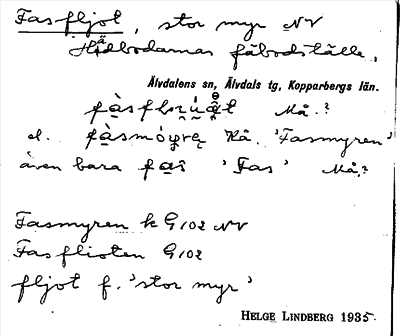 Fasfljot, stor myr NV
Hådbodarnas fäbodställe,
Älvdalens sn, Älvdals tg, Kopparbergs län.
Må.?
el. Hå. 'Fasmyren'
även bara fas 'Fas' Må.?
Fasmyren k G102 NV
Fasflioten G102
fljot f. 'stor myr'
HELGE LINDBERG 1935.